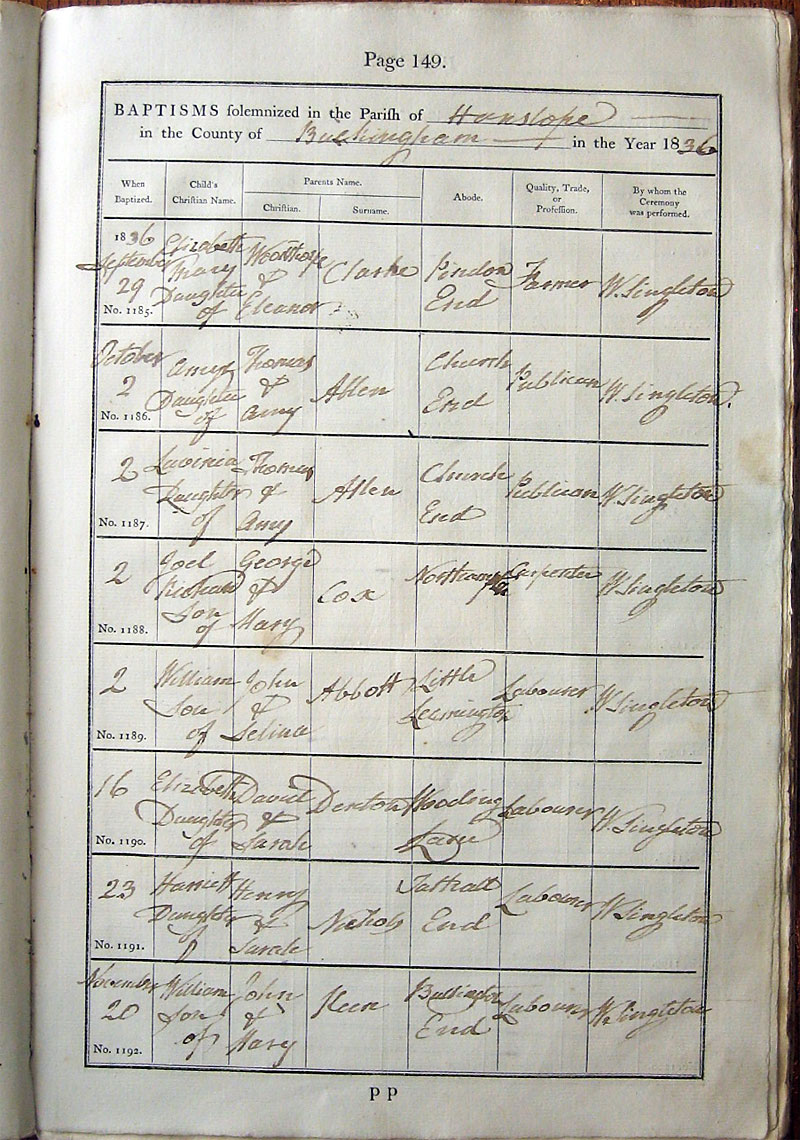 Page 149.
BAPTISMS solemnized in the Pariſh of Hanslope
in the County of Buckingham in the Year 1836
When Baptized. Child's Chriſtian Name. Parents Name. Abode. Quality, Trade, or Profeſſion. By whom the Ceremony was performed.
Chriſtian. Surname.
1836 September 29 No. 1185. Elizabeth Mary Daughter of & Eleanor Clarke Pindon End Farmer W. Singleton
October 2 No. 1186. Amy Daughter of Thomas & Amy Allen Church End Publican W. Singleton.
2 No. 1187. Lavinia Daughter of Thomas & Amy Allen Church End Publican W. Singleton
2 No. 1188. Joel Richard Son of George & Mary Cox Carpenter W. Singleton
2 No. 1189. William Son of John & Selina Abbott Little Leamington Labourer W. Singleton
16 No. 1190. Elizabeth Daughter of David & Sarah Denton Wooding Lane Labourer W. Singleton
23 No. 1191. Harriett Daughter of Henry & Sarah Nichols Tathall End Labourer W. Singleton
November 20 No. 1192. William Son of John & Mary Keen Bullington End Labourer Wm Singleton
P P